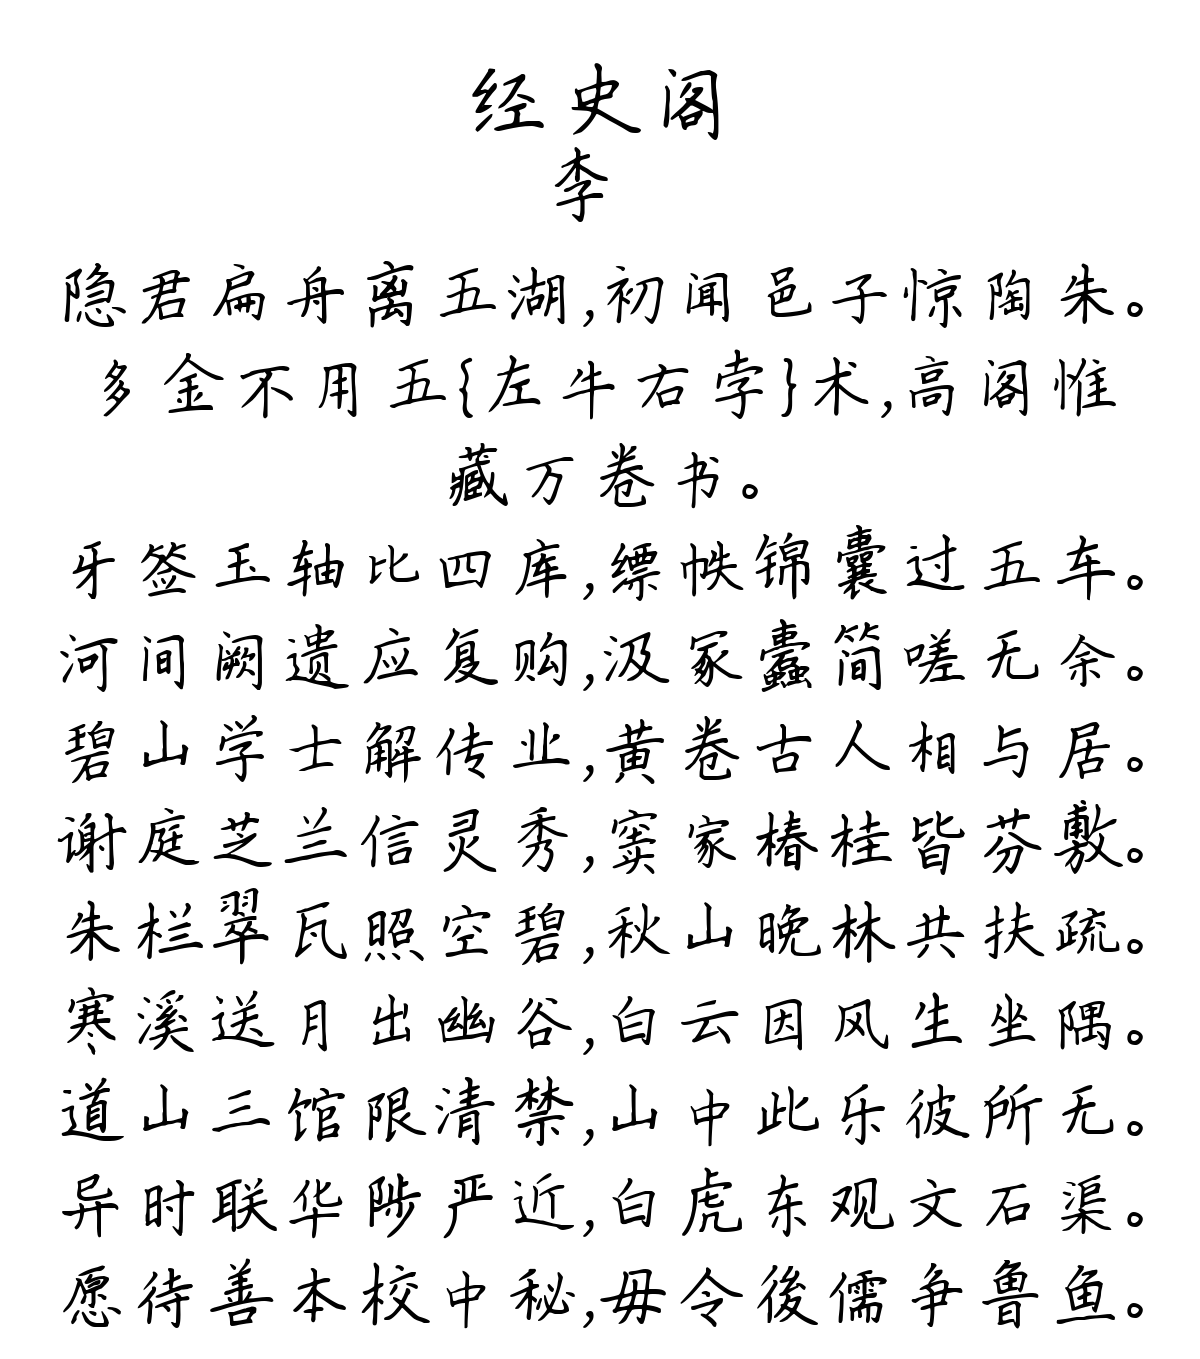 经史阁
李
隐君扁舟离五湖,初闻邑子惊陶朱。
多金不用五{左牛右孛}术,高阁惟
藏万卷书。
牙签玉轴比四库,缥帙锦囊过五车。
河间阙遗应复购,汲冢蠹简嗟无余。
碧山学士解传业,黄卷古人相与居。
谢庭芝兰信灵秀,窦家椿桂皆芬敷。
朱栏翠瓦照空碧,秋山晚林共扶疏。
寒溪送月出幽谷,白云因风生坐隅。
道山三馆限清禁,山中此乐彼所无。
异时联华陟严近,白虎东观文石渠。
愿待善本校中秘,毋令後儒争鲁鱼。